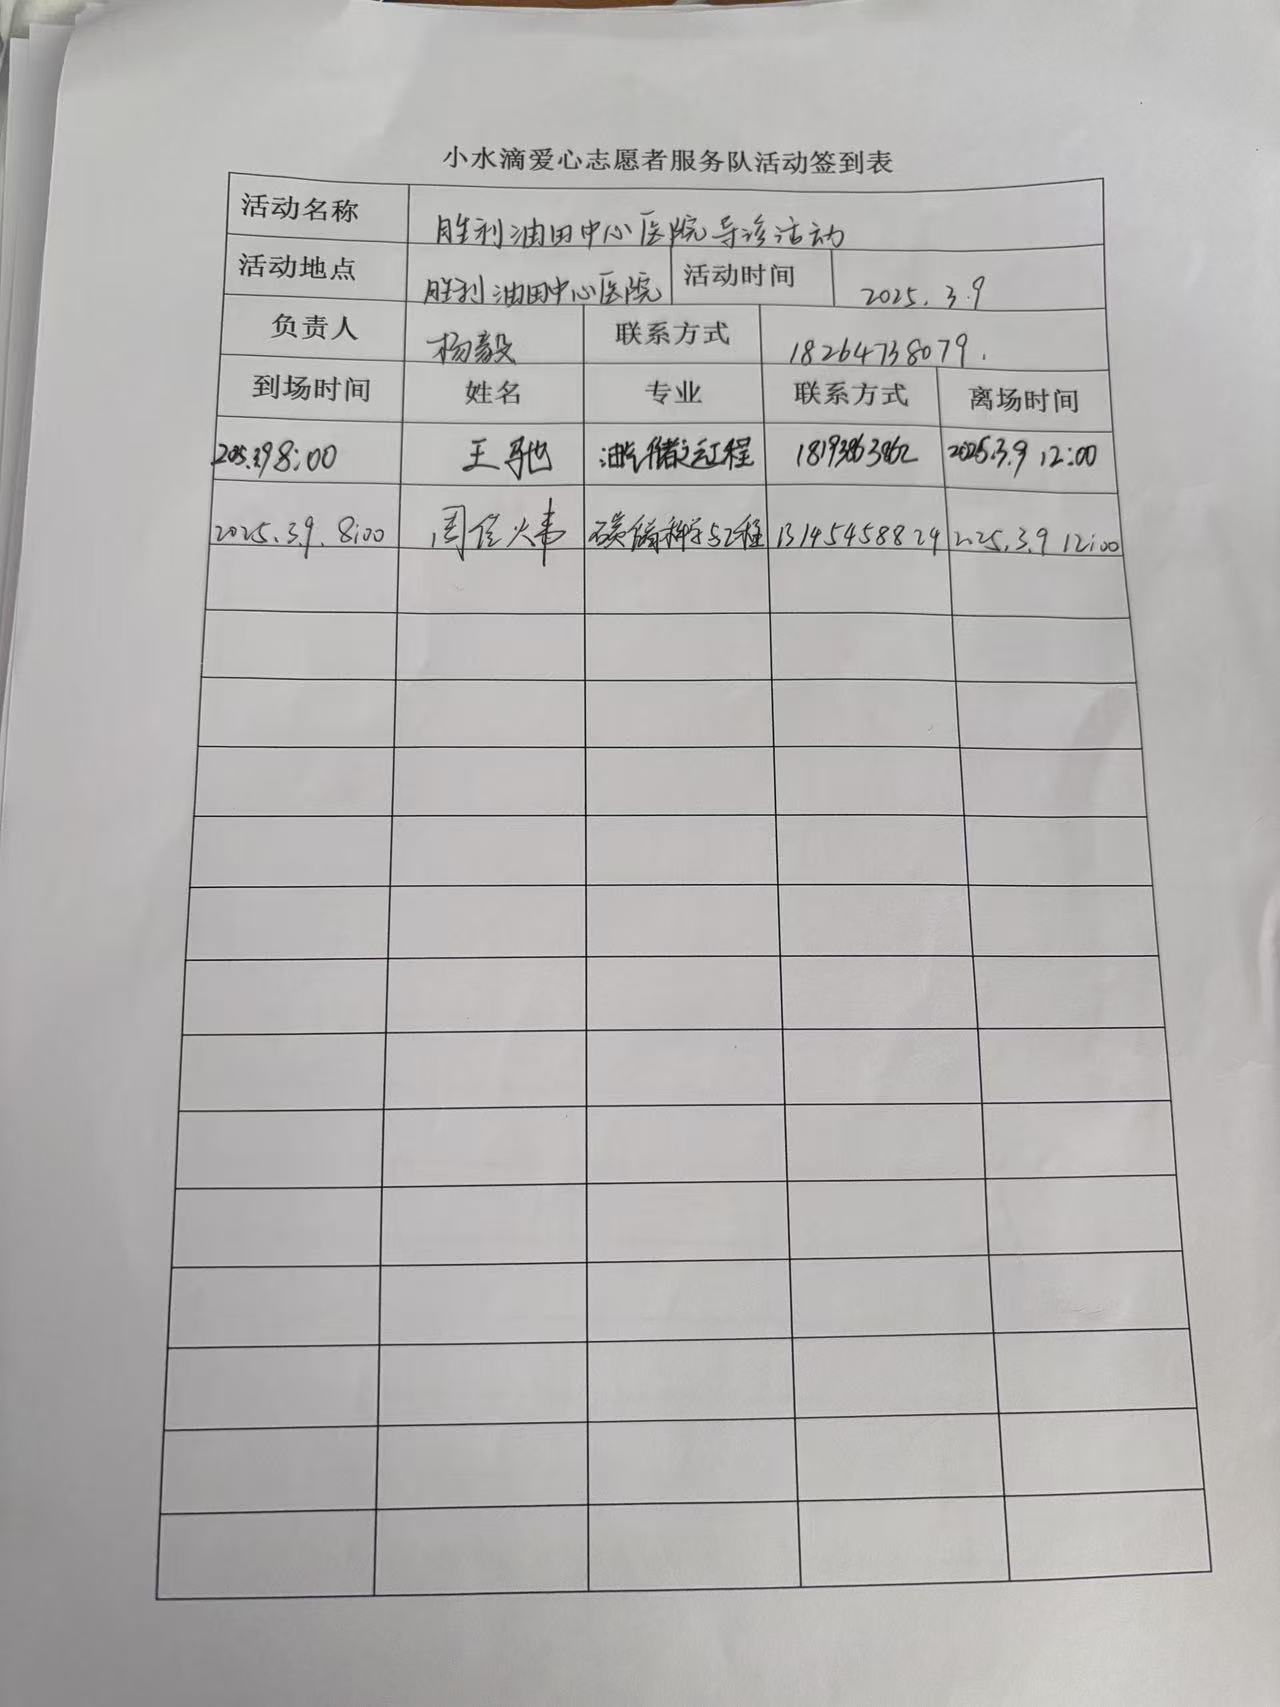 小水滴爱心志愿者服务队活动签到表
活动名称 胜利油田中心医院导诊活动
活动地点 胜利油田中心医院 活动时间 2025.3.9
负责人 杨毅 联系方式 18264738079.
到场时间 姓名 专业 联系方式 离场时间
8:00 王驰 油气储运工程 2025.3.9 12:00
2025.3.9. 8:00 周佳炜 碳储科学与工程 13145458824 2025.3.9 12:00